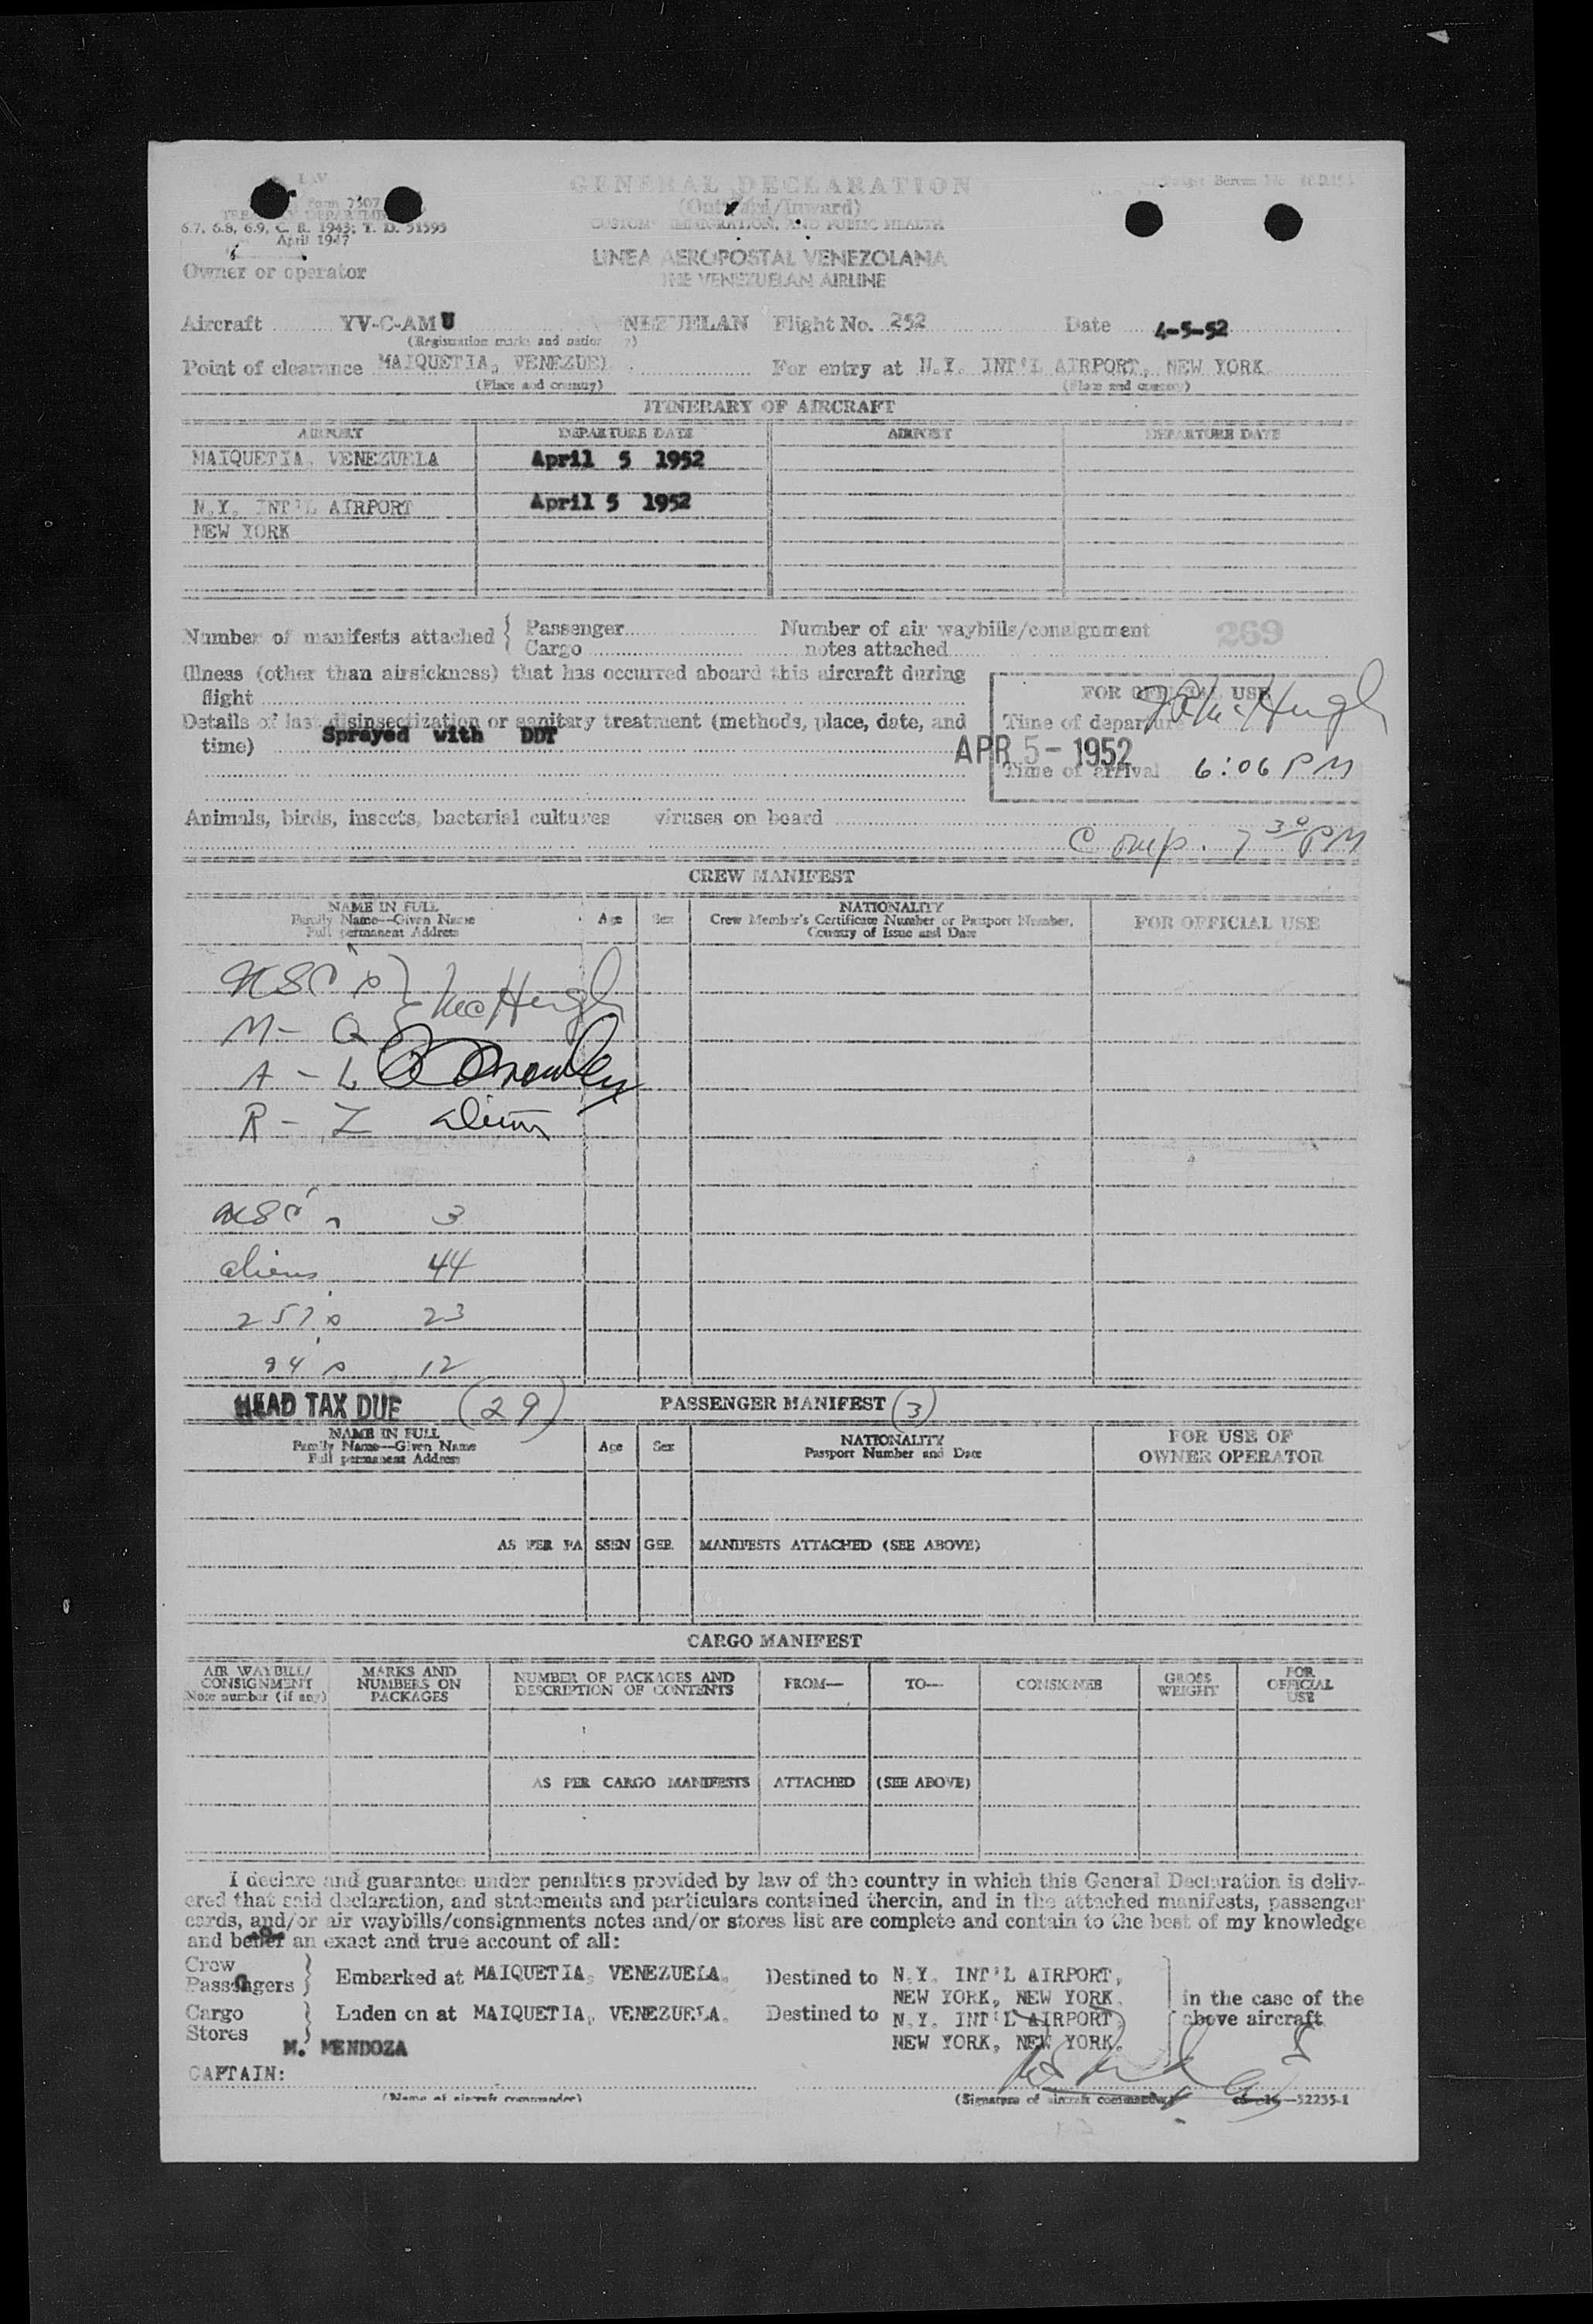 Form 7507
TREASURY DEPARTMENT
6.7, 6.8, 6.9, C. R. 1943; T. D. 51595
April 1947
GENERAL DECLARATION
(Outward/Inward)
CUSTOMS, IMMIGRATION, AND PUBLIC HEALTH
LINEA AEROPOSTAL VENEZOLANA
THE VENEZUELAN AIRLINE
Owner or operator
Aircraft YV-C-AMU NEZUELAN Flight No. 252 Date 4-5-52
(Registration marks and nation
Point of clearance MAIQUETIA, VENEZUEL For entry at N.Y. INT'L AIRPORT, NEW YORK
(Place and country) (Place and country)
ITINERARY OF AIRCRAFT
AIRPORT DEPARTURE DATE AIRPORT DEPARTURE DATE
MAIQUETIA, VENEZUELA April 5 1952
N.Y. INT'L AIRPORT April 5 1952
NEW YORK
Number of manifests attached { Passenger Number of air waybills/consignment 269
Cargo notes attached
Illness (other than airsickness) that has occurred aboard this aircraft during
flight
FOR OFFICIAL USE
Details of last disinsectization or sanitary treatment (methods, place, date, and
time) Sprayed with DDT
Time of departure McHugh
APR 5 - 1952
Time of arrival 6:06 PM
Animals, birds, insects, bacterial cultures viruses on board
Comp. 7 30 PM
CREW MANIFEST
NAME IN FULL
Family Name—Given Name
Full permanent Address
Age Sex
NATIONALITY
Crew Member's Certificate Number or Passport Number,
Country of Issue and Date
FOR OFFICIAL USE
USC's } McHugh
M - Q
A - L
R - Z
USC's 3
aliens 44
257's 23
94's 12
HEAD TAX DUE (29) PASSENGER MANIFEST (3)
NAME IN FULL
Family Name—Given Name
Full permanent Address
Age Sex
NATIONALITY
Passport Number and Date
FOR USE OF
OWNER OPERATOR
AS PER PASSENGER MANIFESTS ATTACHED (SEE ABOVE)
CARGO MANIFEST
AIR WAYBILL/
CONSIGNMENT
Note number (if any)
MARKS AND
NUMBERS ON
PACKAGES
NUMBER OF PACKAGES AND
DESCRIPTION OF CONTENTS
FROM— TO— CONSIGNEE
GROSS
WEIGHT
FOR
OFFICIAL
USE
AS PER CARGO MANIFESTS ATTACHED (SEE ABOVE)
I declare and guarantee under penalties provided by law of the country in which this General Declaration is deliv-
ered that said declaration, and statements and particulars contained therein, and in the attached manifests, passenger
cards, and/or air waybills/consignments notes and/or stores list are complete and contain to the best of my knowledge
and belief an exact and true account of all:
Crew
Passengers } Embarked at MAIQUETIA, VENEZUELA. Destined to N.Y. INT'L AIRPORT,
NEW YORK, NEW YORK. in the case of the
Cargo } Laden on at MAIQUETIA, VENEZUELA. Destined to N.Y. INT'L AIRPORT, above aircraft
Stores NEW YORK, NEW YORK.
M. MENDOZA
CAPTAIN:
(Name of aircraft commander) (Signature of aircraft commander) 52235-1